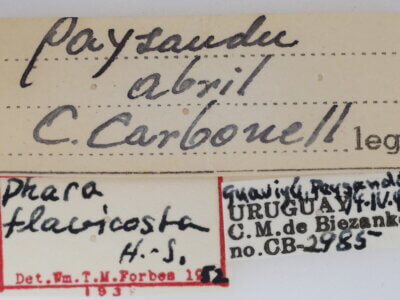 Paysandu
abril
C. Carbonell leg
Phara
flavicosta
H.-S.
Det. Wm. T. M. Forbes 19 52
193
Guaviyú, Paysandú
URUGUAY
C. M. de Biezank
no. CB-2985